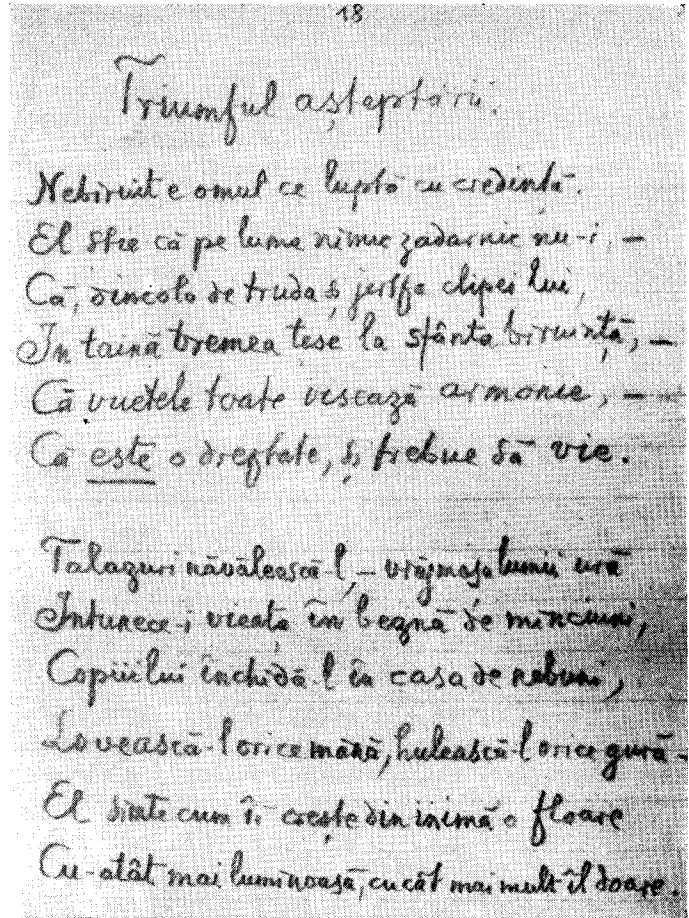 18
Triumful așteptării.
Nebiruit e omul ce luptă cu credință.
El știe că pe lume nimic zadarnic nu-i, –
Că, dincolo de truda și jertfa clipei lui,
În taină vremea țese la sfânta biruință, –
Că vuetele toate visează armonie, –
Că este o dreptate, și trebue să vie.
Talazuri năvălească-l, – vrăjmașa lumii ură
Întunece-i vieața în beznă de minciuni,
Copiii lui închidă-l în casa de nebuni,
Lovească-l orice mână, hulească-l orice gură –
El simte cum îi crește din inimă o floare
Cu-atât mai luminoasă, cu cât mai mult îl doare.